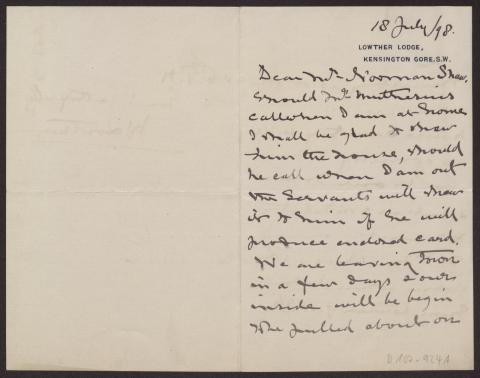 18 July/98.
LOWTHER LODGE,
KENSINGTON GORE. S.W.
Dear Mr. Norman Shaw,
Should Mr. Muthesius
call when I am at home
I shall be glad to show
him the house, should
he call when I am out
the Servants will show
it to him if he will
produce enclosed card.
We are leaving Town
in a few days & our
inside will be begin
to be pulled about on
D 102-9241